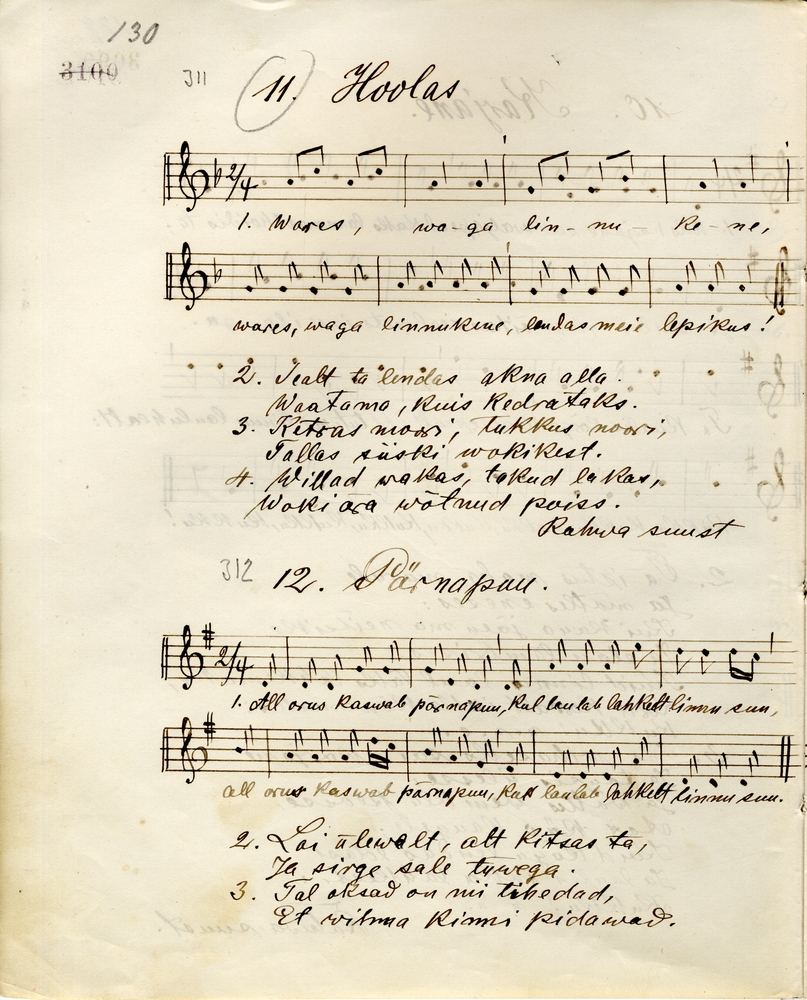 130
3100
311
11. Hoolas
2/4
1. Wares, wa-ga lin-nu-ke-ne,
wares, waga linnukene, lendas meie lepikus!
2. Sealt ta lendas akna alla
Waatama, kuis kedrätaks.
3. Ketras moori, tukkus noori,
Tallas siiski wokikest.
4. Willad wakas, takud lakas,
Woki ära wõtnud poiss.
Rahwa suust
312
12. Pärnapuu.
2/4
1. All orus kaswab pärnapuu, kus laulab lahkelt linnu suu,
all orus kaswab pärnapuu, kus laulab lahkelt linnu suu.
2. Lai ülewalt, alt kitsas ta,
Ja sirge sale tüwega.
3. Tal oksad on nii tihedad,
Et wihma kinni pidawad.